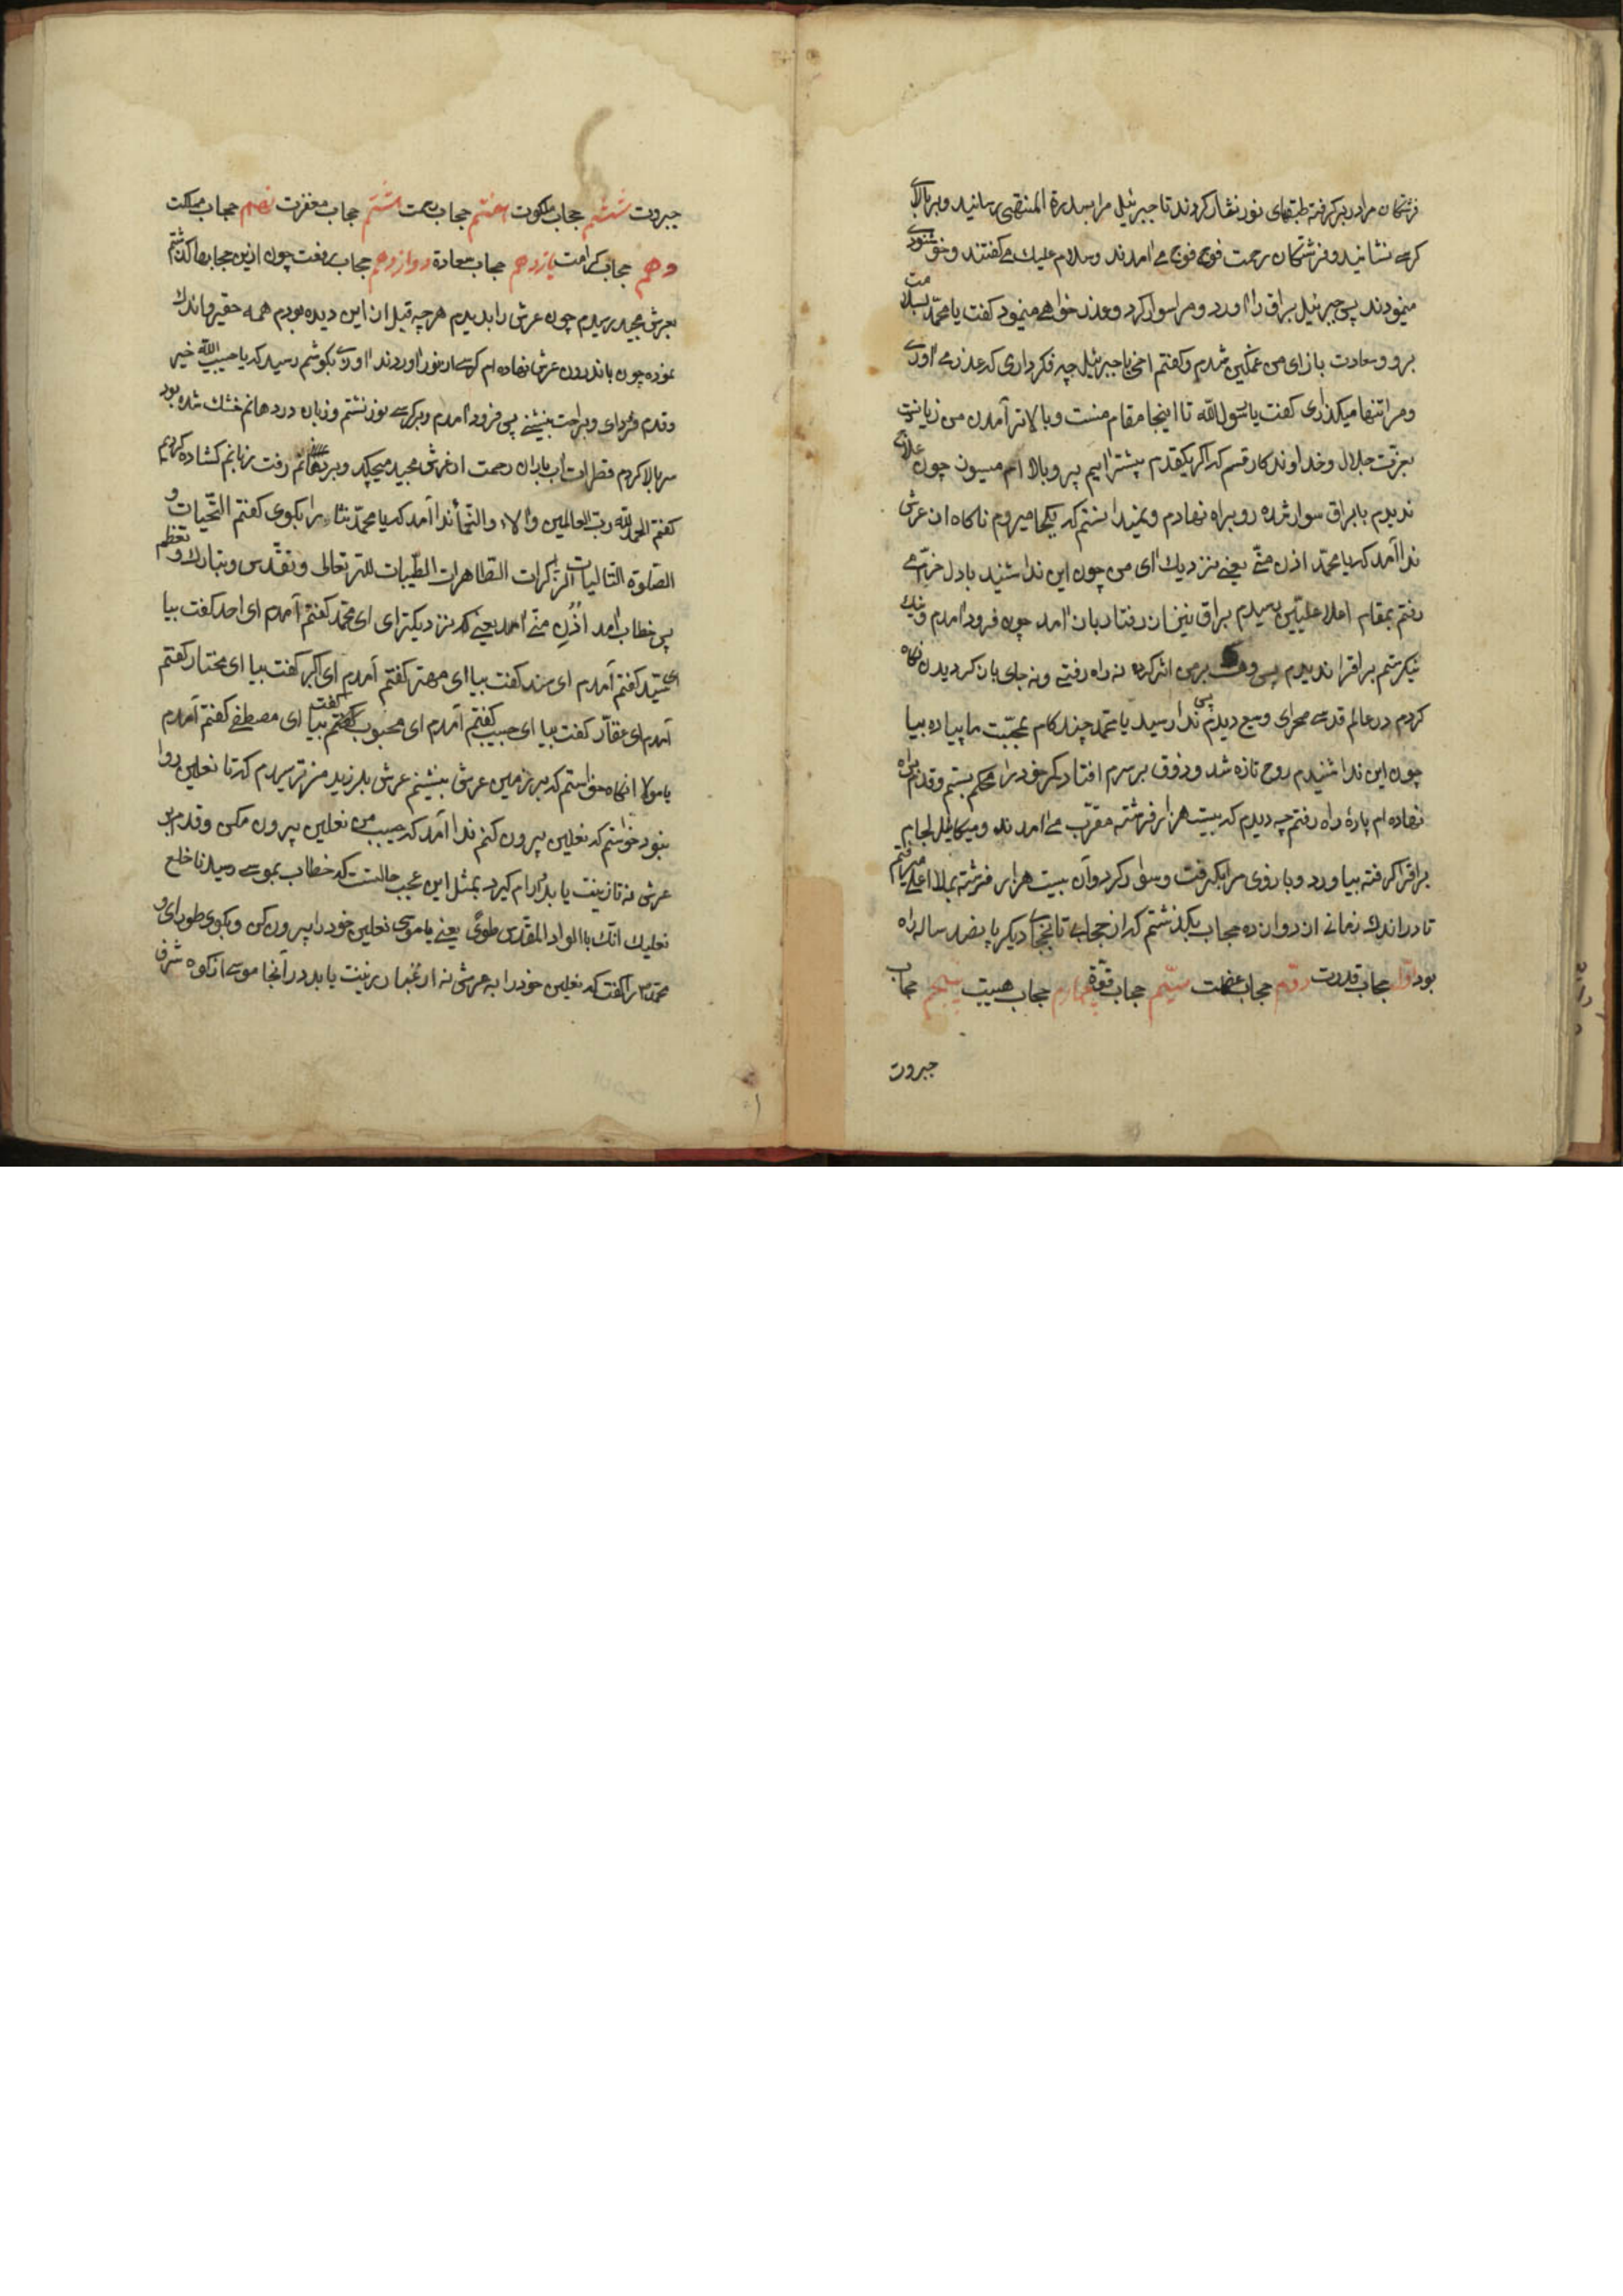 فرشتگان مرا در بر گرفته طبقهای نور نثار کردند تا جبرئیل مرا بسدرة المنتهی رسانید و بر بالای
کرسے نشانید و فرشتگان رحمت فوج فوج مے امدند وسلام علیك مے گفتند و خوشنودے
مینمودند پس جبرئیل براق را اورد و مرا سوار کرد و عذر خواهے مینمود گفت یا محمّد بسلامت
برو و سعادت باز ای من غمگین شدم و گفتم اخی یا جبرئیل چه فکر داری که عذر مے اورے
و مرا تنها میگذاری گفت یا رسول اللّٰه تا اینجا مقام منست و بالاتر آمدن من
بعزت جلال و خداوند کار قسم که اگر یکقدم پیشتر ایم پر و بالا ام میسوزد چون
ندیدم بابراق سوار شده رو براه نهادم و نمیدانستم که بکجا میروم ناگاه از عرش
ندا آمد که یا محمّد ادن منّے یعنے نزدیك ای من چون این ندا شنید بادل
رفتم بمقام اعلا علیّین رسیدم براق نیز از رفتار باز امد چون فرود امدم و نیك
نیگرستم براق را ندیدم پس بر من اثر کرد نه راه رفتے و نه جای باز گردیدن نگاه
کردم در عالم قدسے صحرای وسیع دیدم پس ندا رسید یا محمّد چند گام بمحبّت ما پیاده بیا
چون این ندا شنیدم روح تازه شد و ذوق بر سرم افتاد کمر خود را محکم بستم و قدم براه
نهاده ام پارهٔ راه رفتم چه دیدم که بیست هزار فرشته مقرّب مے امدند و میکائیل لجام
براق را گرفته بیاورد و بازوی مرا بگرفت و سوار کرد و آن بیست هزار فرشته ببلا اعلے میرفتم
تا در اندك زمانے از دوازده حجاب بگذشتم که از حجابے تا بحجابے دیگر پانصد ساله راه
بود اوّل حجاب قدرت دوّم حجاب عظمت سیّم حجاب قوّة چهارم حجاب هیبت پنجم حجاب
جبروت
جبروت ششم حجاب ملکوت هفتم حجاب رحمت هشتم حجاب مغفرت نهم حجاب مملکت
دهم حجاب کرامت یازدهم حجاب سعادة دوازدهم حجاب رفعت چون ازین حجابها گذشتم
بعرش مجید رسیدم چون عرش را بدیدم هرچه قبل از این دیده بودم همه حقیر و اندك
نموده چون باندرون عرش نهاده ام کرسے از نور اوردند اوازے بگوشم رسید که یا حبیب اللّٰه خیر
و قدم فرود ای و براحت بنشینے پس فرود امدم و بر کرسے نور نشتم و زبان در دهانم خشك شده بود
سر بالا کردم قطرات آب باران رحمت از عرش مجید میچکید و بر دهانم رفت زبانم گشاده کردیم
گفتم الحمد للّٰه ربّ العالمین و الالاء والنعماء ندا آمد که یا محمّد ثناء را بگوی گفتم التّحیات و
الصّلوة التّالیات الزّاکرات الطّاهرات الطّیبات للّٰه تعالی و تقدّس و تبارك و تعظم
پس خطاب امد اُدْنِ مِنّے احمد یعنے که نزدیکتر ای ای محمّد گفتم آمدم ای احد گفت بیا
ای سیّد گفتم آمدم ای سند گفت بیا ای مهتر گفتم آمدم ای اکبر گفت بیا ای مختار گفتم
آمدم ای غفّار گفت بیا ای حبیب گفتم آمدم ای محبوب گفت بیا ای مصطفے گفتم آمدم
یا مولا انگاه خواستم که بر زمین عرش بنشینم عرش بلرزید من ترسیدم که تا نعلین روا
نبود خواستم که نعلین بیرون کنم ندا آمد که حبیب من نعلین بیرون مکن و قدم بر
عرش نه تا زینت یابد و آرام گیرد بمثل این عجب حالتست که خطاب بموسے رسید فاخلع
نعلیك انّك باالواد المقدّس طویً یعنے یا موسی نعلین خود را بیرون کن و بکوی طور ای و
محمّد را گفت که نعلین خود را به عرش نه از غبار زینت یابد در آنجا موسے از کوه شرف